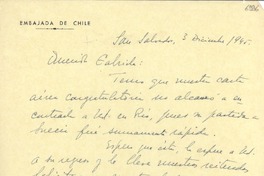 EMBAJADA DE CHILE
San Salvador, 3 Diciembre/945.
Querida Gabriela:
Temo que nuestra carta
aérea congratulatoria no alcanzó a ser
entregada a Ud. en Río, pues su partida a
Suecia fué sumamente rápida.
Espero que ésta, le espere a Ud.
a su regreso y le lleve nuestras reiteradas